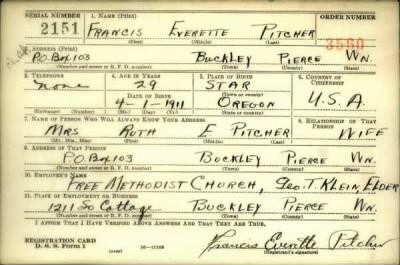 SERIAL NUMBER 1. NAME (Print) ORDER NUMBER
2151 FRANCIS EVERETTE PITCHER 3560
(First) (Middle) (Last)
2. ADDRESS (Print)
P.O. Box 103 BUCKLEY PIERCE WN.
(Number and street or R. F. D. number) (Town) (County) (State)
3. TELEPHONE 4. AGE IN YEARS 5. PLACE OF BIRTH 6. COUNTRY OF CITIZENSHIP
none 29 STAR
DATE OF BIRTH (Town or county)
4-1-1911 OREGON U.S.A
(Exchange) (No.) (Mo.) (Day) (Yr.) (State or country)
7. NAME OF PERSON WHO WILL ALWAYS KNOW YOUR ADDRESS 8. RELATIONSHIP OF THAT PERSON
MRS RUTH E PITCHER WIFE
(Mr., Mrs., Miss) (First) (Middle) (Last)
9. ADDRESS OF THAT PERSON
P.O. Box 103 BUCKLEY PIERCE WN.
(Number and street or R. F. D. number) (Town) (County) (State)
10. EMPLOYER'S NAME
FREE METHODIST CHURCH, Geo. T. KLEIN, ELDER
11. PLACE OF EMPLOYMENT OR BUSINESS
1211 So Cottage BUCKLEY PIERCE WN
(Number and street or R. F. D. number) (Town) (County) (State)
I AFFIRM THAT I HAVE VERIFIED ABOVE ANSWERS AND THAT THEY ARE TRUE.
REGISTRATION CARD
D. S. S. Form 1 16-17105 Francis Everette Pitcher
(Registrant's signature)